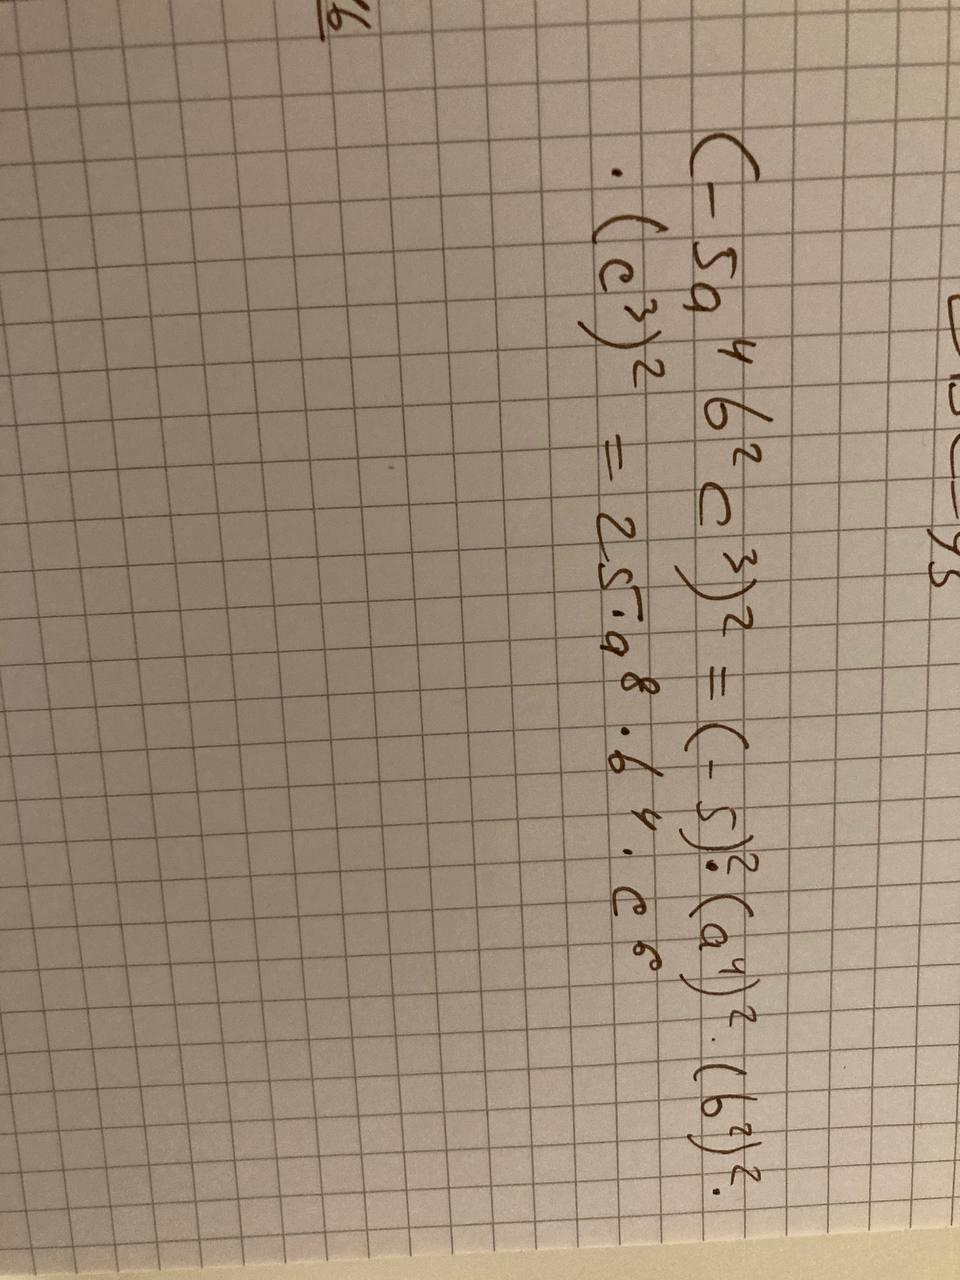 (-5a⁴b²c³)² = (-5)²·(a⁴)²·(b²)²·
·(c³)² = 25·a⁸·b⁴·c⁶